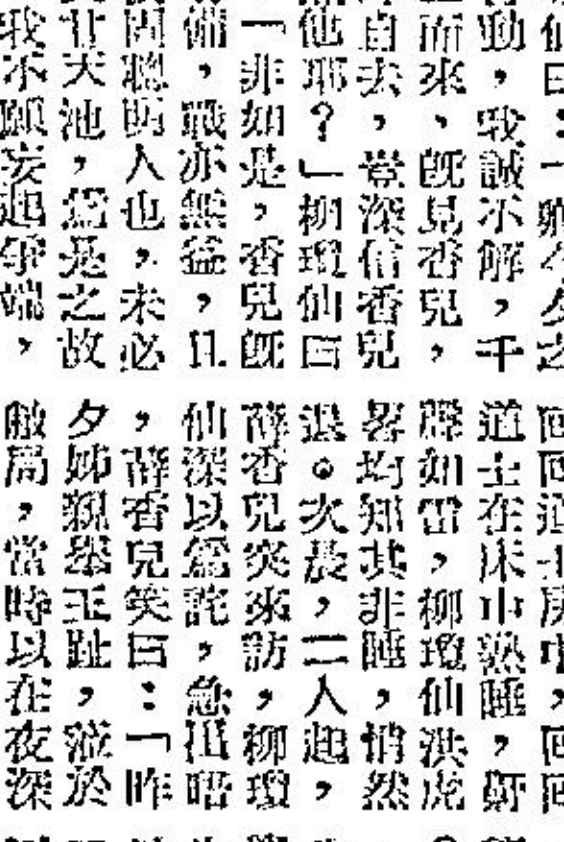 動，我誠不解，千
而來，、既見香兒，
自去，豈深信香兒，
他耶？」柳瓊仙曰
一非如是，香兒既
備，戰亦無益，且
聰明人也，未必
天池，爲是之故
我不願妄起爭端，
道士在床中熟睡，鼾
聲如雷，柳瓊仙洪虎
畧均知其非睡，悄然
退。次晨，二人起，
薛香兒突來訪，柳瓊
仙深以爲詫，急出晤
，薛香兒笑曰：「昨
夕姊親舉玉趾，蒞於
敝局，當時以在夜深